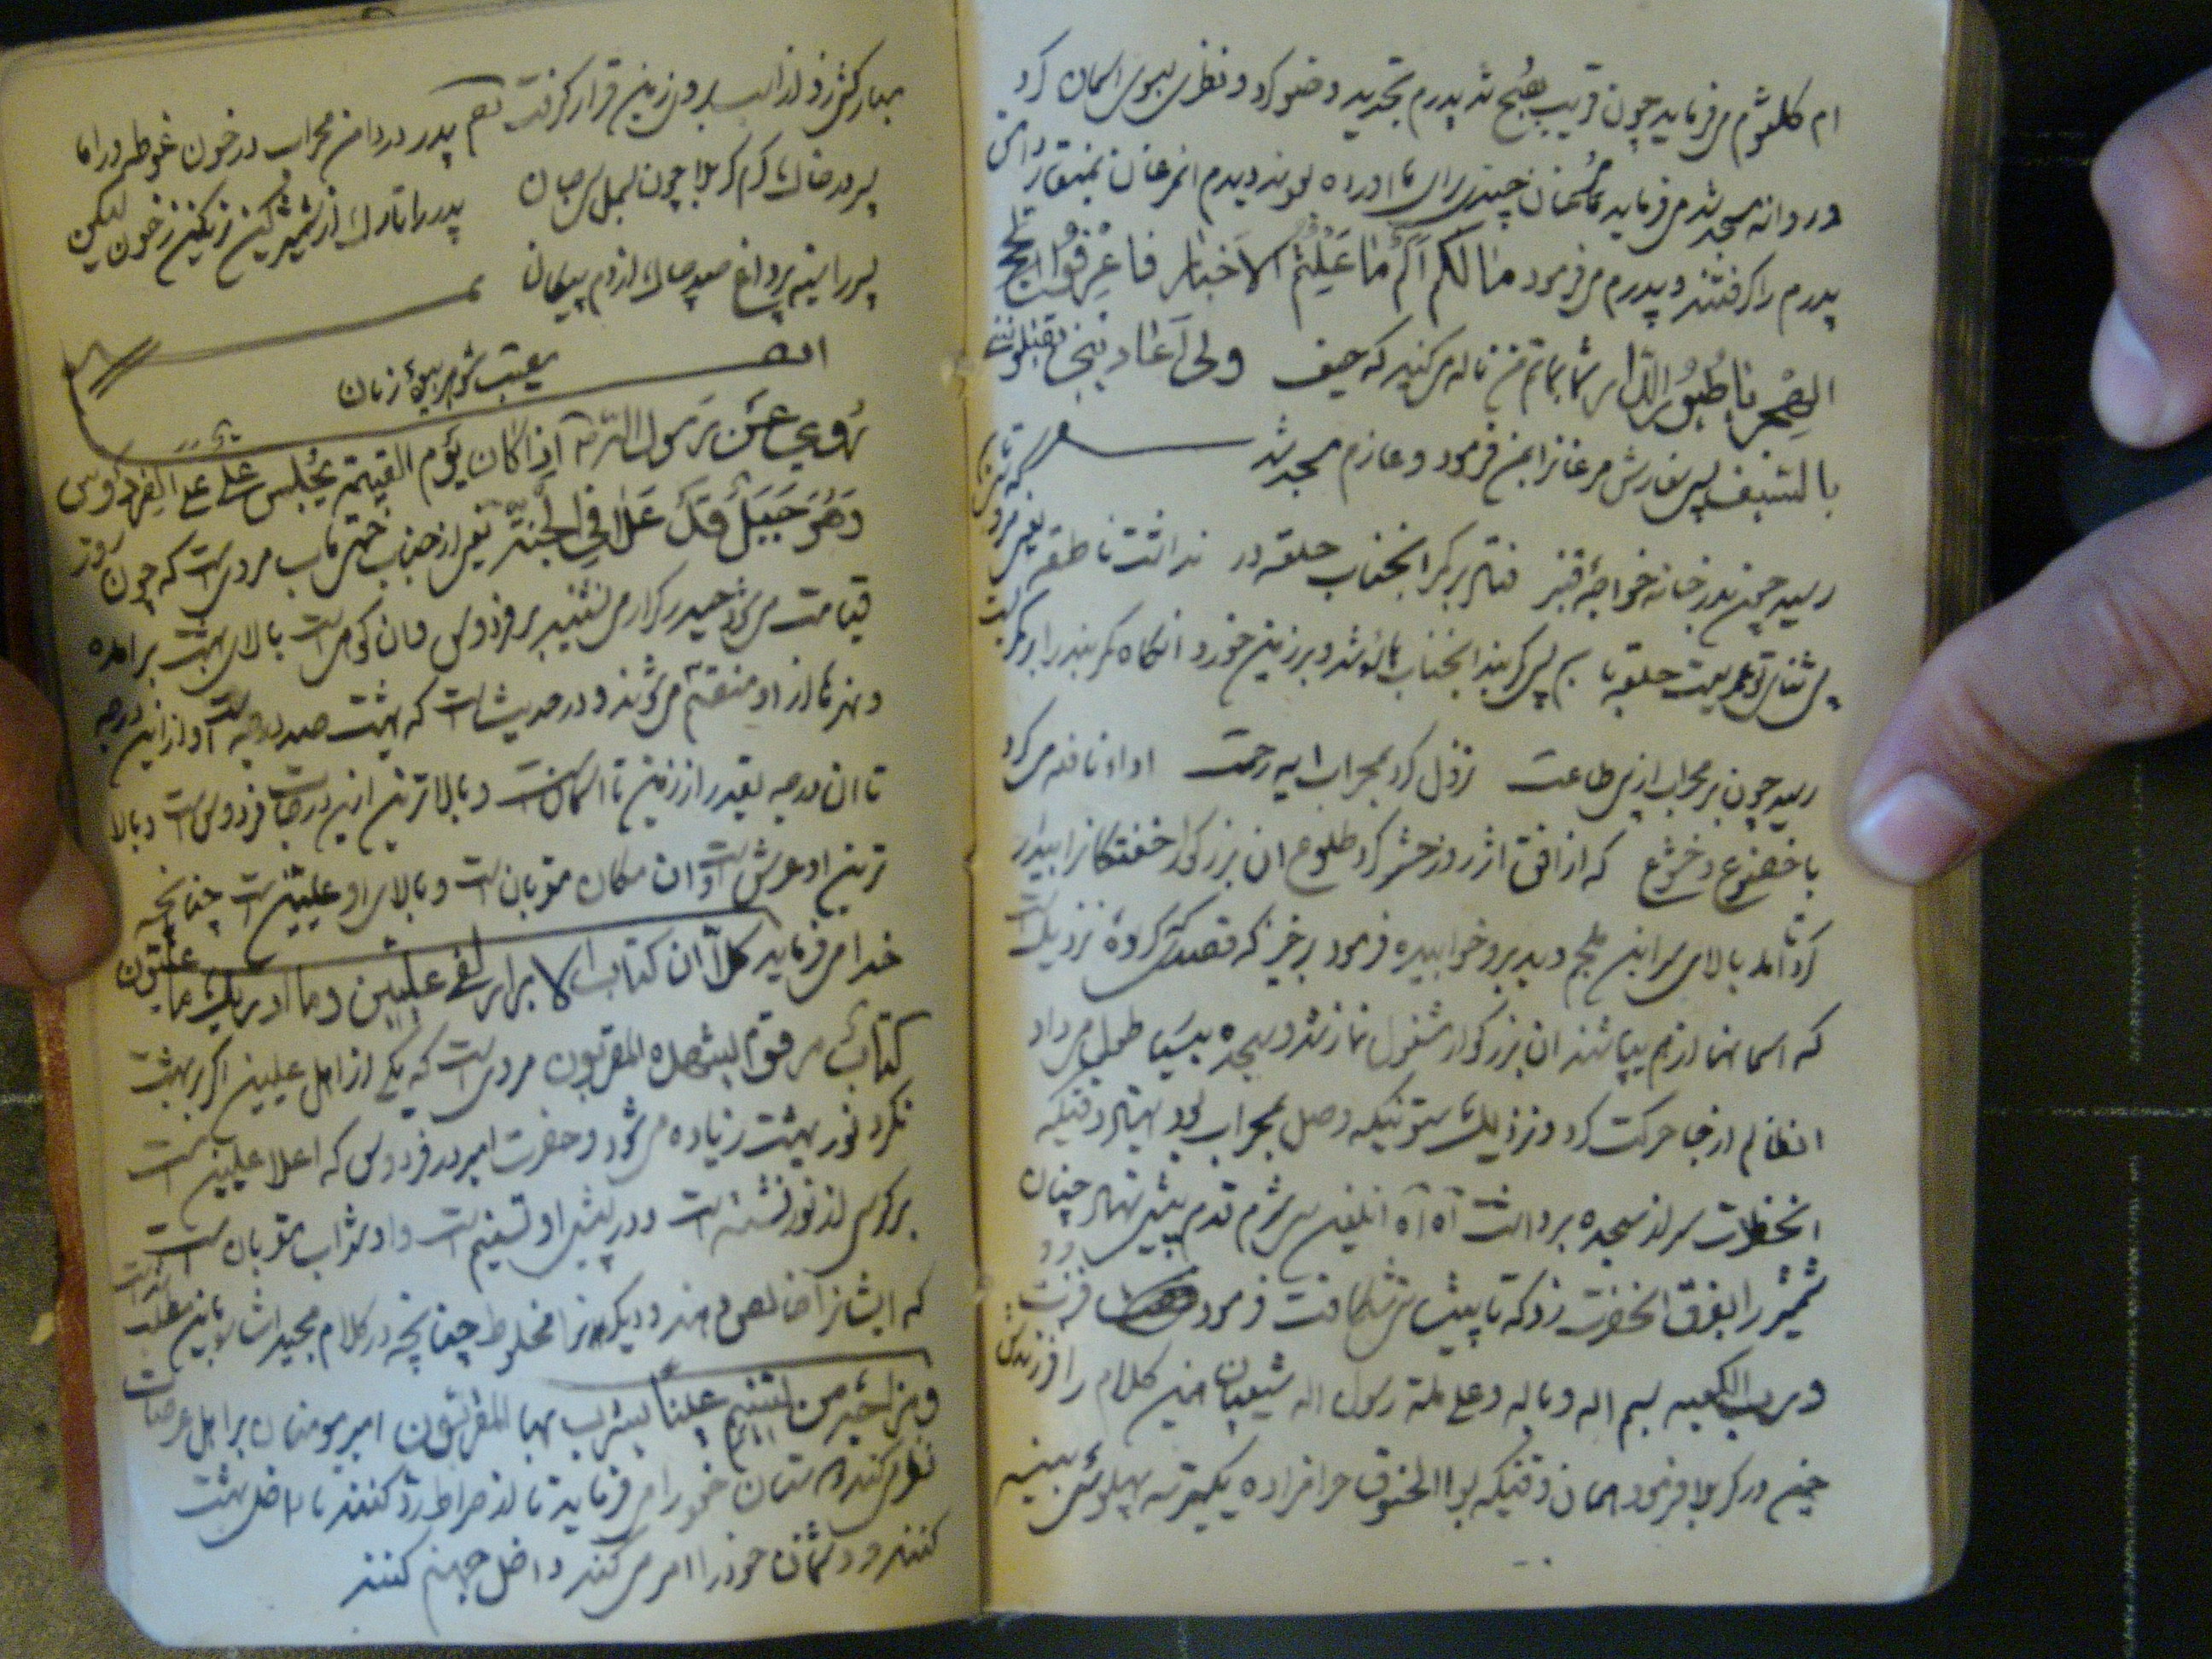 ام کلثوم میفرماید چون قریب صبح شد پدرم تجدید وضو کرد و نظری بسوی اسمان کرد
و روانه مسجد شد میفرماید مرغان چندی برای ما اورده بودند دیدم انمرغان بمنقار دامن
پدرم را گرفتند و پدرم میفرمود مالکم
یا طیور الدار شما بماتم من ناله میکنید که حیف
بالسیف پس سفارش مرغانرا بمن فرمود و عازم مسجد شد
رسید چون بدر خانه خواجهٔ قنبر فتاد بر کمر انجناب حلقه در نداشت ناطقه
پس کمربند انجناب باز شد و بر زمین خورد انگاه کمربند را بر کمر بست
رسید چون بر محراب از پی طاعت نزول کرد بمحراب ایه رحمت اداء نافله می کرد
با خضوع و خشوع که از افق اثر روز حشر کرد طلوع ان بزرگوار خفتگانرا بیدار
کرد تا امد بالای سر ابن ملجم دید برو خوابیده فرمود برخیز که قصدی کردهٔ نزدیک است
که اسمانها از هم بپاشند ان بزرگوار مشغول نماز شد و سجده بسیار طول می داد
انظالم از جا حرکت کرد و نزدیک ستونیکه وصل بمحراب بود بهتر وقتیکه
انحضرت سر از سجده برداشت آه آه انلعین بی شرم قدم پیش نهاد چنان
شمشیر را بفرق انحضرت زد که تا پیشانیش شکافت فرمود فزت
و رب الکعبه بسم اله و باله و علی ملة رسول اله شیعیان همین کلام را فرزندش
حسین در کربلا فرمود همان وقتیکه ابوالحنوق حرامزاده یک تیر سه پهلو بسینه
مبارکش زد از اسب بروی زمین قرار گرفت نظم پدر در دامن محراب در خون غوطه ور اما
پسر در خاک گرم کربلا چون بسمل بی جان پدر را تارک از شمشیر کین رنگین ز خون لیکن
پسر را سینه پر داغ صد چاک از دم پیکان
ایضا
روی عن رسول الله اذا کان یوم القیمة یجلس علی علی الفردوس
وهو جبل قد علا فی الجنة یعنی از جناب ختمی ماب مرویست که چون روز
قیامت می شود حیدر کرار می نشیند بر فردوس و ان کوهی است بالای بهشت برامده
و نهرها از او منقسم می شوند و در حدیث است که بهشت صد درجه است و از این درجه
تا ان درجه بقدر از زمین تا اسمانست و بالاترین این درجات فردوس است و بالا
ترین او عرش است و ان مکان مقربان است و بالای او علیین است چنانچه
خدا می فرماید کلا ان کتاب الابرار لفی علیین وما ادریک ما علیون
کتاب مرقوم یشهده المقربون مرویست که یکی از اهل علیین اگر به بهشت
نگرد نور بهشت زیاده می شود و حضرت امیر در فردوس که اعلا علیین است
بر کرسی از نور نشسته است و در پیش او تسنیم است و او شراب مقربان است
که ایشانرا خالص دهند و دیگرانرا مخلوط چنانچه در کلام مجید اشاره باین مطلب است
ومزاجه من تسنیم عینا یشرب بها المقربون امیر مومنان بر اهل عرصات
نظر می کند دوستان خود را می فرماید تا از صراط رد کنند تا داخل بهشت
کنند و دشمنان خود را امر می کند داخل جهنم کنند